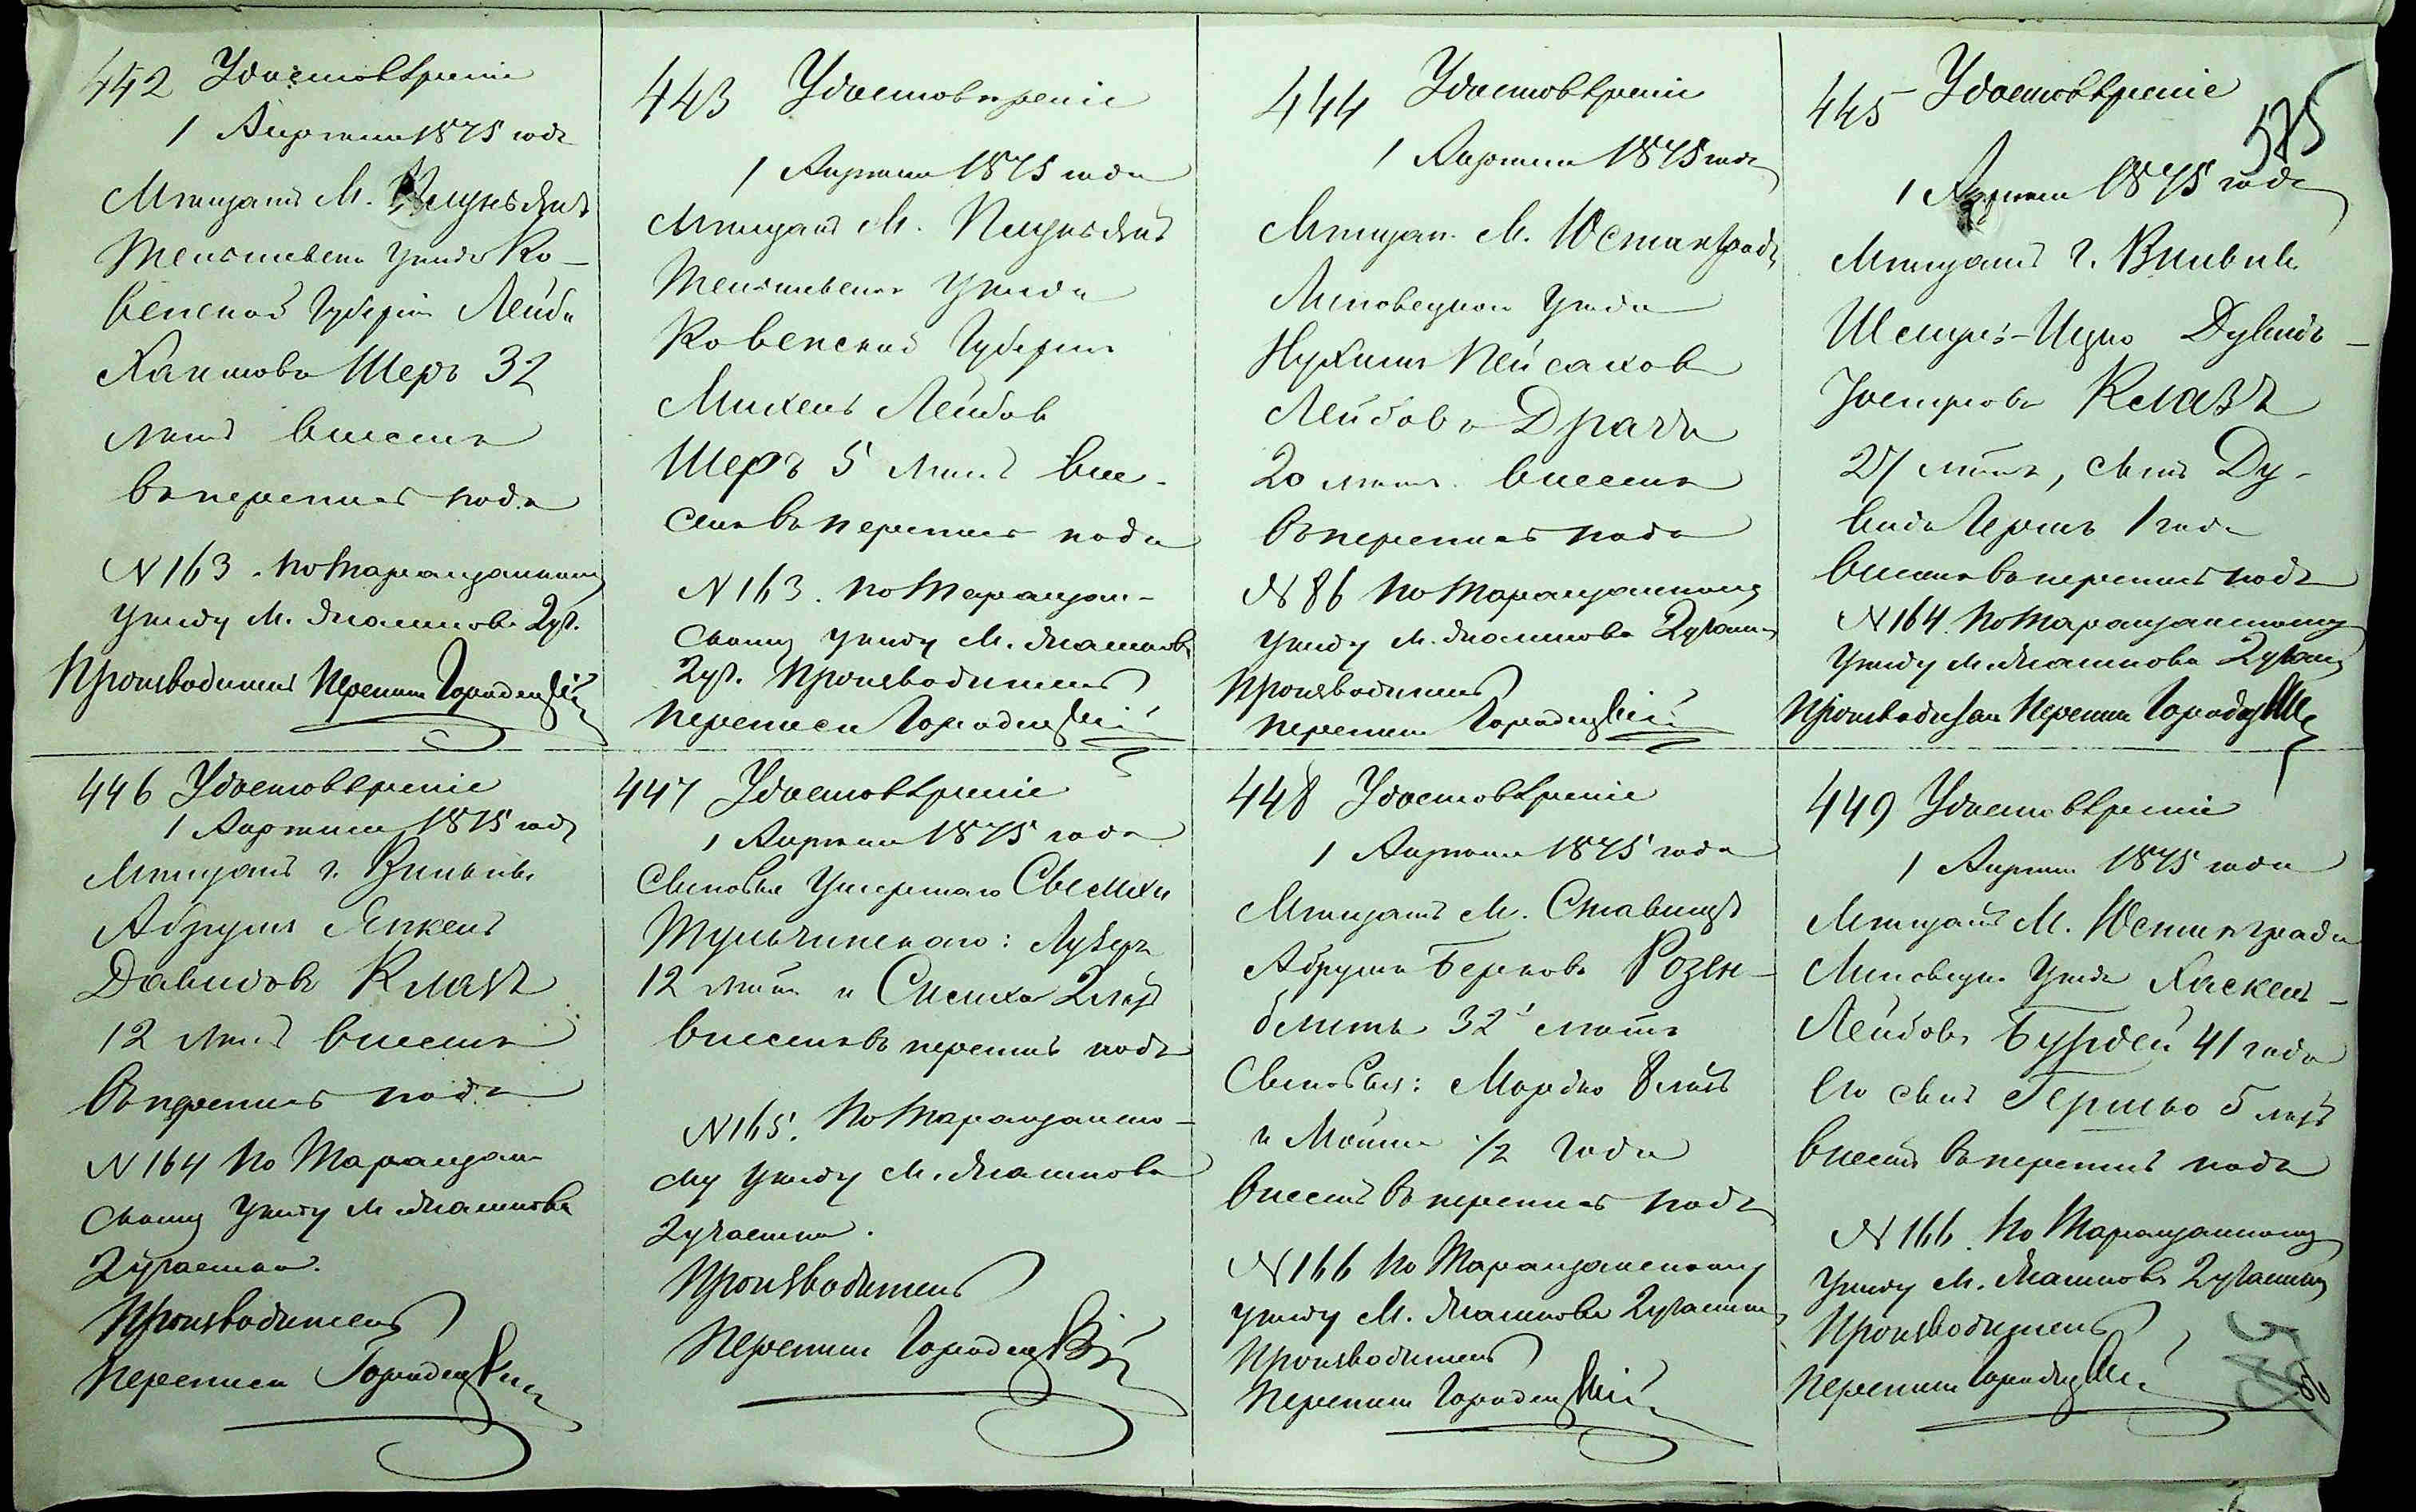 442 Удостовѣреніе
1 Апрѣля 1875 года
Мѣщанинъ М.
Тельшевска уѣзда Ко-
венской Губерніи Лейба
Хаимовъ Шеръ 32
лѣтъ внесенъ
въ перепись подъ
N 163. по Таращанскому
уѣзду М. 2 уч.
Производитель Переписи Городецкій
443 Удостовѣреніе
1 Апрѣля 1875 года
Мѣщанинъ М.
Тельшевска уѣзда
Ковенской Губерніи
Михель Лейбов
Шеръ 5 лѣтъ вне-
сенъ въ перепись подъ
N 163. по Таращан-
скому уѣзду М.
2 уч. Производитель
переписи Городецкій
444 Удостовѣреніе
1 Апрѣля 1875 года
Мѣщан. М. Юстинград
Липовецкаго уѣзда
Нухимъ Пейсахов
Лейбовъ Драчъ
20 лѣтъ. внесенъ
въ перепись подъ
N 86 по Таращанскому
уѣзду М. 2 участк
Производитель
переписи Городецкій
445 Удостовѣреніе
575
1 Апрѣля 1875 года
Мѣщанинъ г. Вильны
Дувидъ
27 лѣтъ, сынъ Ду-
вида Герш 1 года
внесенъ въ перепись подъ
N 164. по Таращанскому
уѣзду М. 2 участк
Производитель Переписи Городецкій
446 Удостовѣреніе
1 Апрѣля 1875 года
Мѣщанинъ г. Вильны
Абрумъ Янкель
Давидовъ
12 лѣтъ внесенъ
въ перепись подъ
N 164 по Таращан-
скому уѣзду М.
2 участка.
Производитель
переписи Городецкій
447 Удостовѣреніе
1 Апрѣля 1875 года
Сыновья умершаго
Тульчинскаго:
12 лѣтъ и 2 лѣтъ
внесенъ въ перепись подъ
N 165. по Таращанско-
му уѣзду М.
2 участка.
Производитель
переписи Городецкій
448 Удостовѣреніе
1 Апрѣля 1875 года
Мѣщанинъ М. Ставищъ
Абрумъ Берковъ Розен-
блитъ 32 лѣтъ
Сыновья: Мордко 8 лѣтъ
и ½ года
внесенъ въ перепись подъ
N 166 по Таращанскому
уѣзду М. 2 участк
Производитель
переписи Городецкій
449 Удостовѣреніе
1 Апрѣля 1875 года
Мѣщанинъ М. Юстинграда
Липовецка уѣзда Хаскель
Лейбовъ Бурдей 41 года
его сынъ Гершко 5 лѣтъ
внесенъ въ перепись подъ
N 166. по Таращанскому
уѣзду М. 2 участк
Производитель
переписи Городецкій